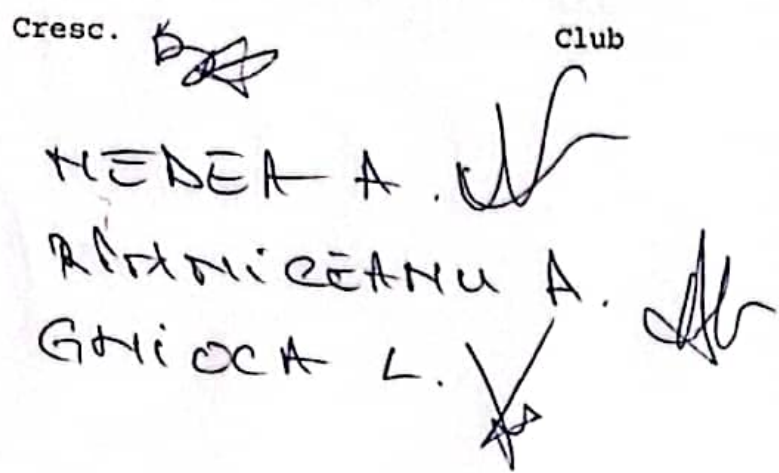 Cresc. Club
NEDEA A.
RÎMNICEANU A.
GHIOCA L.